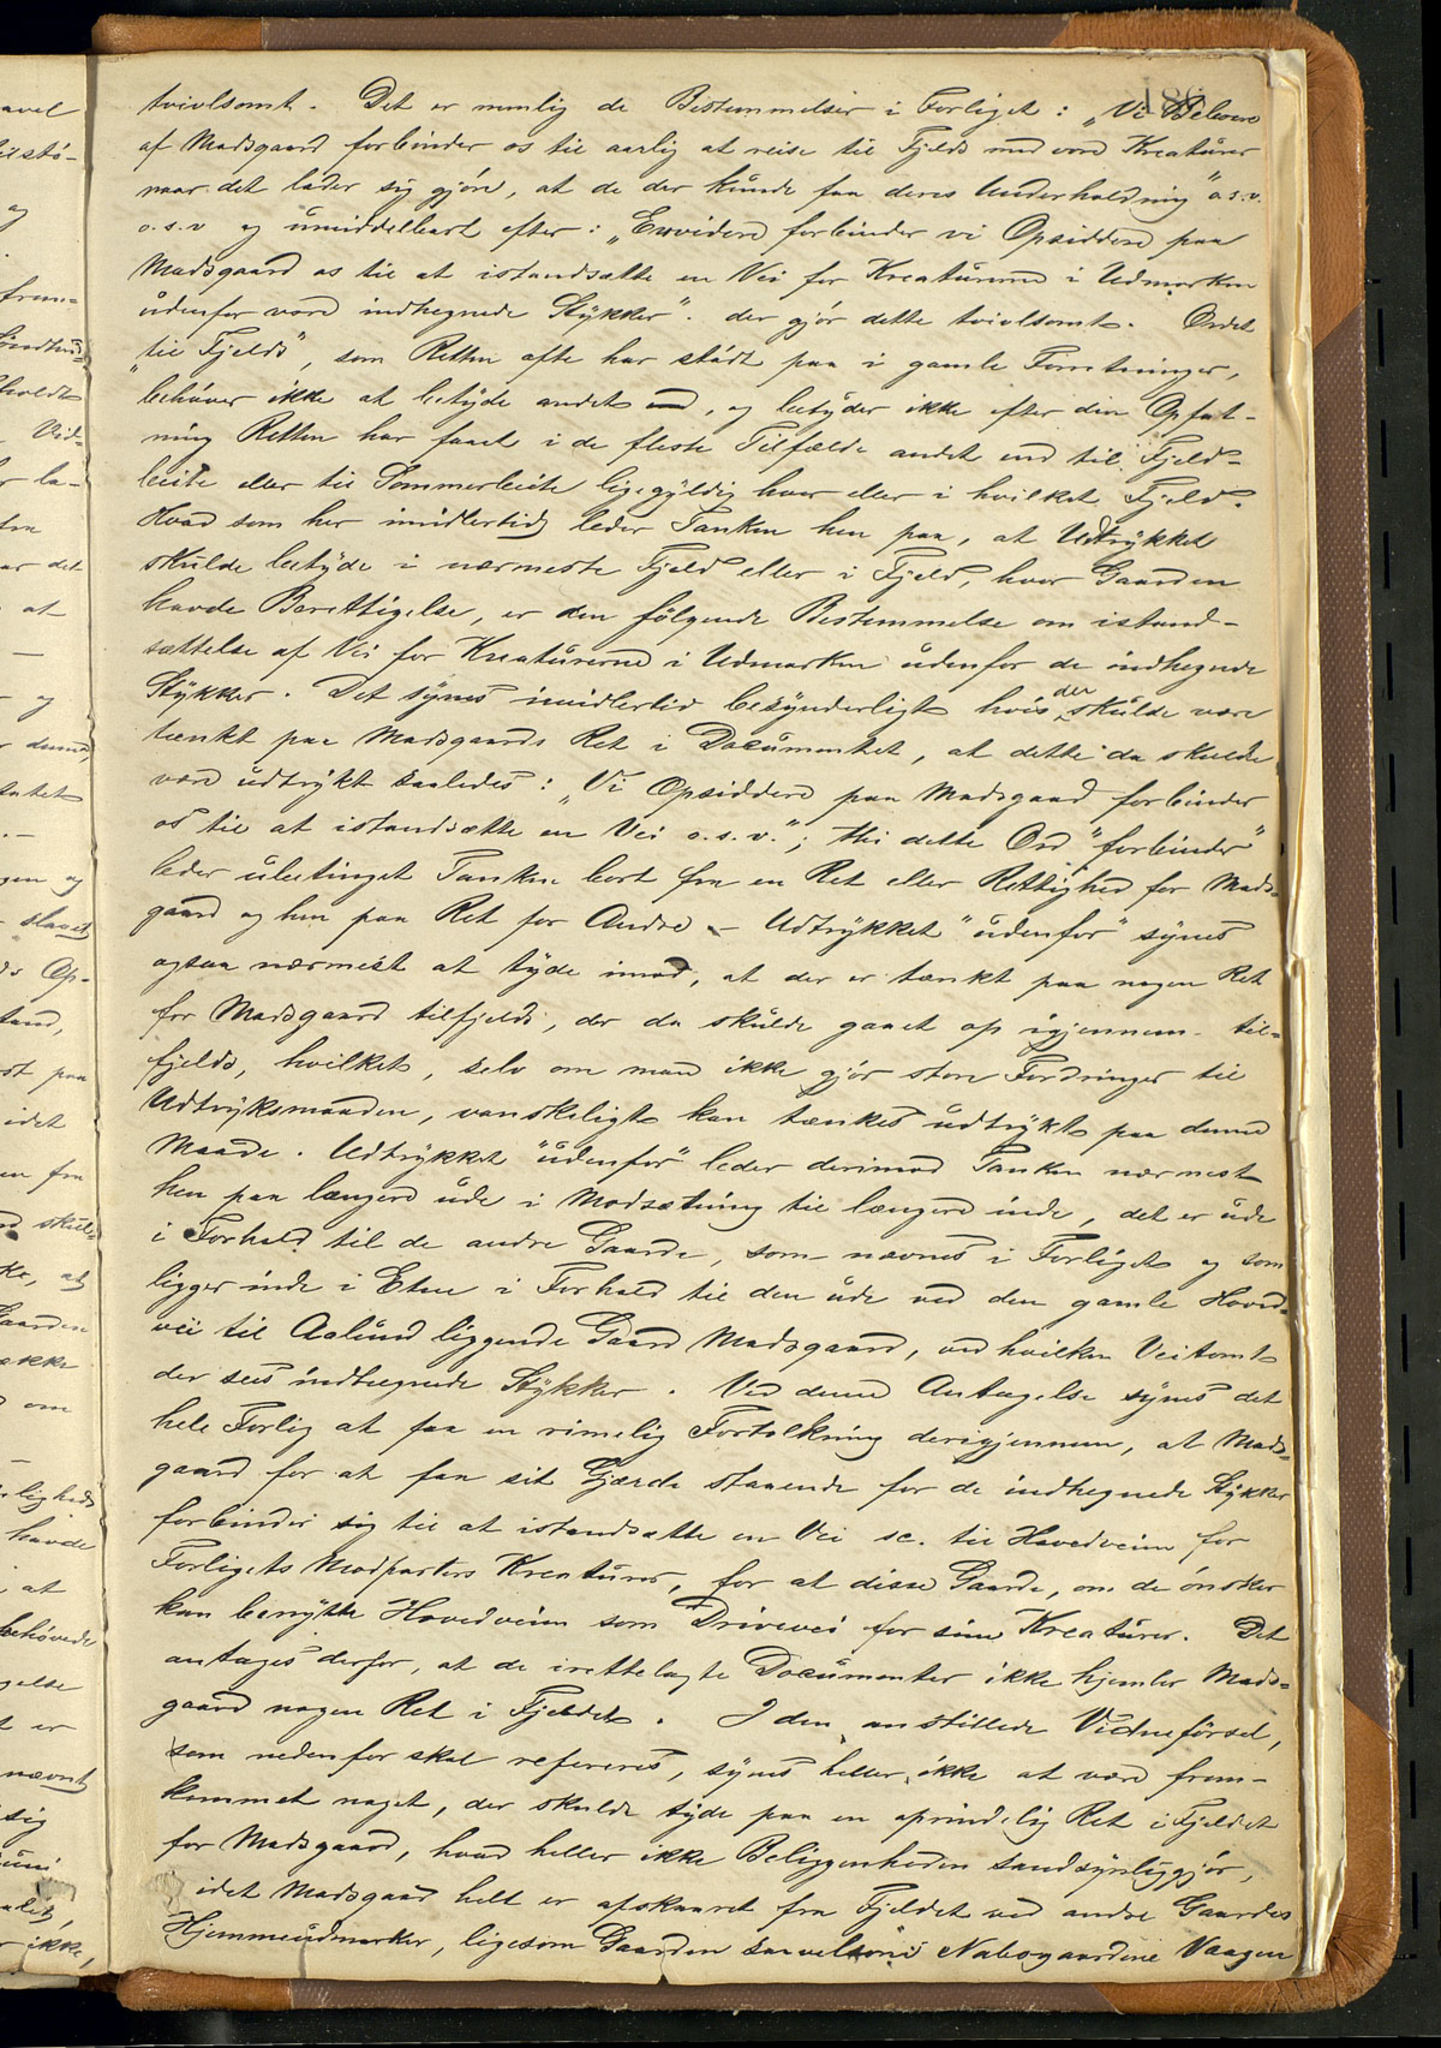 186
tvivlsomt. Det er nemlig de Bestemmelser i Forliget: „Vi Beboere
af Madsgaard forbinder os til aarlig at reise til Fjelds med vore Kreaturer
naar det lader sig gjøre, at de der kunde faa deres Underholdning" o.s.v.
o.s.v og umiddelbart efter: „Envidere forbinder vi Opsiddere paa
Madsgaard os til at istandsætte en Vei for Kreaturerne i Udmarken
udenfor vore indhegnede Stykker". der gjør dette tvivlsomt. Ordet
"til Fjelds", som Retten ofte har stødt paa i gamle Forretninger,
behøver ikke at betyde andet, og betyder ikke efter den Opfat-
ning Retten har faaet i de fleste Tilfælde andet end til Fjeld-
beite eller til Sommerbeite ligegyldig hvor eller i hvilket Fjeld.
Hvad som her imidlertid leder Tanken hen paa, at Udtrykket
skulde betyde i nærmeste Fjeld eller i Fjeld, hvor Gaarden
havde Berettigelse, er den følgende Bestemmelse om istand-
sættelse af Vei for Kreaturerne i Udmarken udenfor de indhegnede
Stykker. Det synes imidlertid besynderligt hvis der skulde være
tænkt paa Madsgaards Ret i Documentet, at dette da skulde
være udtrykt saaledes: „Vi Opsiddere paa Madsgaard forbinder
os til at istandsætte en Vei o.s.v."; thi dette Ord "forbinder"
leder ubetinget Tanken bort fra en Ret eller Rettighed for Mads-
gaard og hen paa Ret for Andre – Udtrykket "udenfor" synes
ogsaa nærmest at tyde imod, at der er tænkt paa nogen Ret
for Madsgaard tilfjelds, der da skulde gaaet op igjennem til-
fjelds, hvilket, selv om man ikke gjør store Fordringer til
Udtryksmaaden, vanskeligt kan tænkes udtrykt paa denne
Maade. Udtrykket "udenfor" leder derimod Tanken nærmest
hen paa længere ude i Modsætning til længere inde, det er ude
i Forhold til de andre Gaarde, som nævnes i Forliget og som
ligger inde i Etne i Forhold til den ude ved den gamle Hoved-
vei til Aalund liggende Gaard Madsgaard, ved hvilken Veitomt
der sees indhegnede Stykker. Ved denne Antagelse synes det
hele Forlig at faa en rimelig Fortolkning derigjennem, at Mads-
gaard for at faa sit Gjærde staaende for de indhegnede Stykker
forbinder sig til at istandsætte en Vei sc. til Hovedveien for
Forligets Modparters Kreaturer, for at disse Gaarde, om de ønsker
kan benytte Hovedveien som Drivevei for sine Kreaturer. Det
antages derfor, at de irettelagte Documenter ikke hjemler Mads-
gaard nogen Ret i Fjeldet. I den anstillede Vidneførsel,
som nedenfor skal refereres, synes heller ikke at være frem-
kommet noget, der skulde tyde paa en oprindelig Ret i Fjeldet
for Madsgaard, hvad heller ikke Beliggenheden sandsynliggjør,
idet Madsgaard helt er afskaaret fra Fjeldet ved andre Gaardes
Hjemmeudmarker, ligesom Gaarden saavelsom Nabogaardene Vaagen